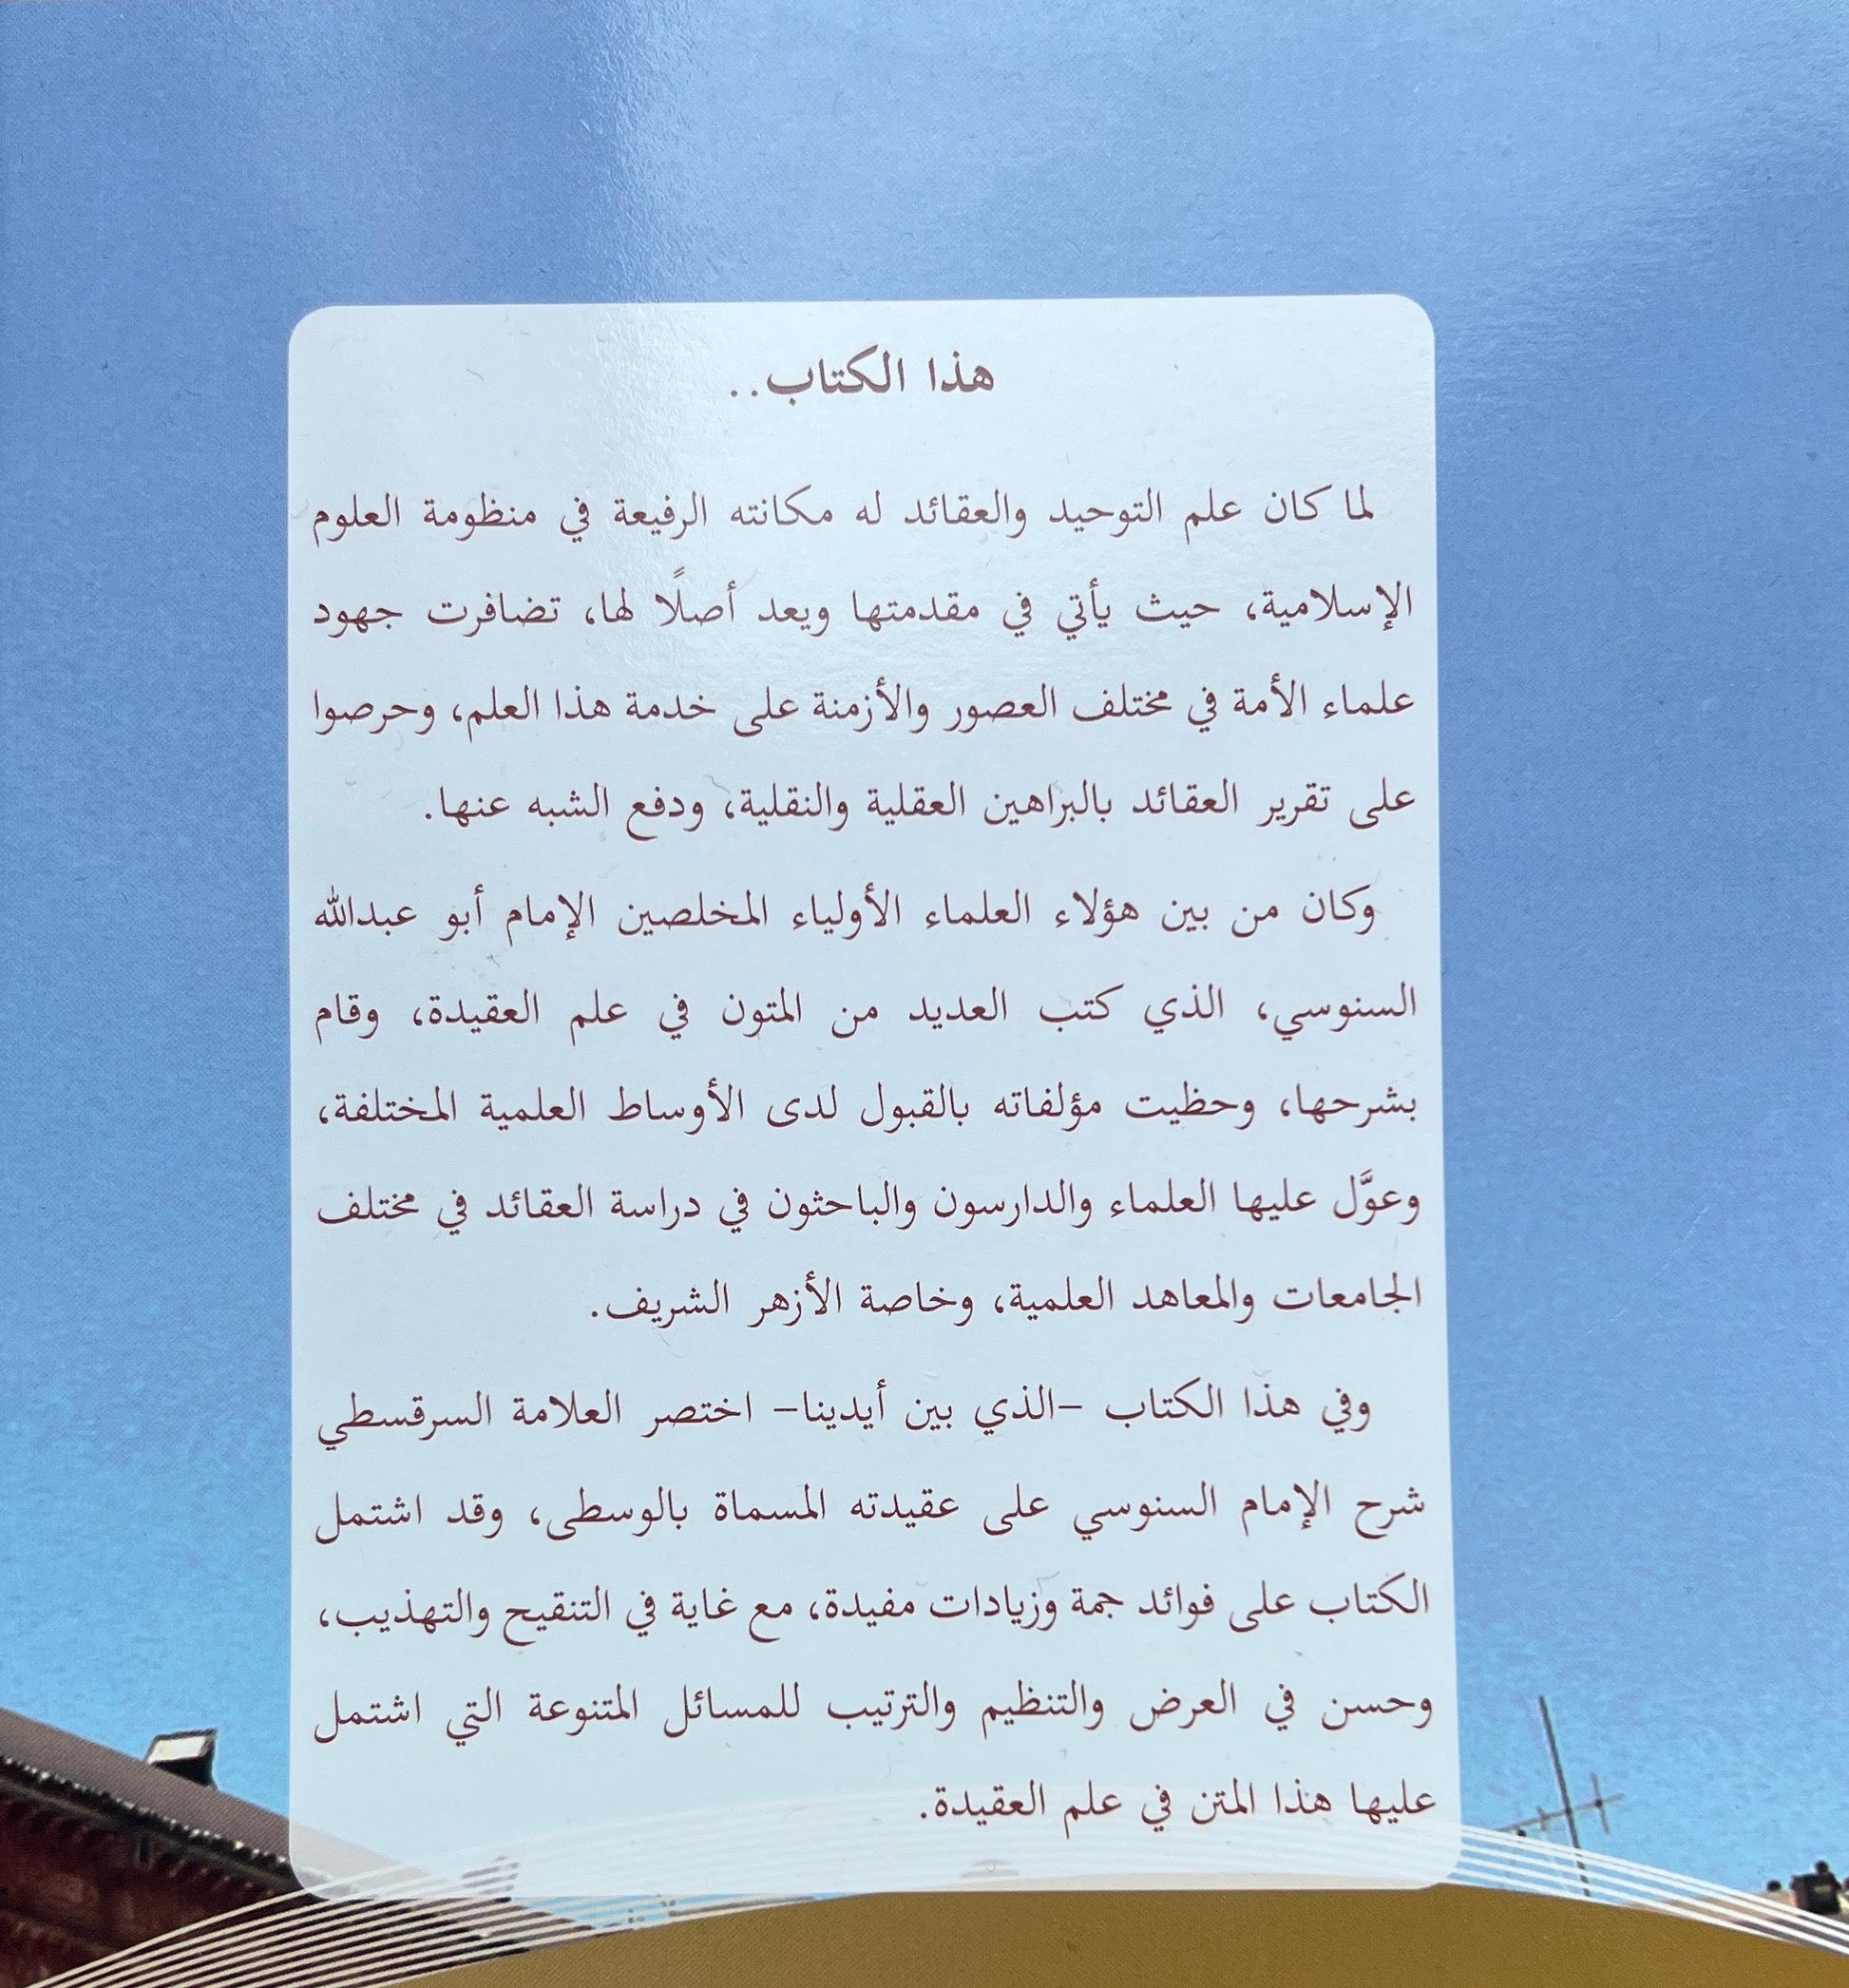 هذا الكتاب..
لما كان علم التوحيد والعقائد له مكانته الرفيعة في منظومة العلوم
الإسلامية، حيث يأتي في مقدمتها ويعد أصلًا لها، تضافرت جهود
علماء الأمة في مختلف العصور والأزمنة على خدمة هذا العلم، وحرصوا
على تقرير العقائد بالبراهين العقلية والنقلية، ودفع الشبه عنها.
وكان من بين هؤلاء العلماء الأولياء المخلصين الإمام أبو عبدالله
السنوسي، الذي كتب العديد من المتون في علم العقيدة، وقام
بشرحها، وحظيت مؤلفاته بالقبول لدى الأوساط العلمية المختلفة،
وعوَّل عليها العلماء والدارسون والباحثون في دراسة العقائد في مختلف
الجامعات والمعاهد العلمية، وخاصة الأزهر الشريف.
وفي هذا الكتاب –الذي بين أيدينا– اختصر العلامة السرقسطي
شرح الإمام السنوسي على عقيدته المسماة بالوسطى، وقد اشتمل
الكتاب على فوائد جمة وزيادات مفيدة، مع غاية في التنقيح والتهذيب،
وحسن في العرض والتنظيم والترتيب للمسائل المتنوعة التي اشتمل
عليها هذا المتن في علم العقيدة.